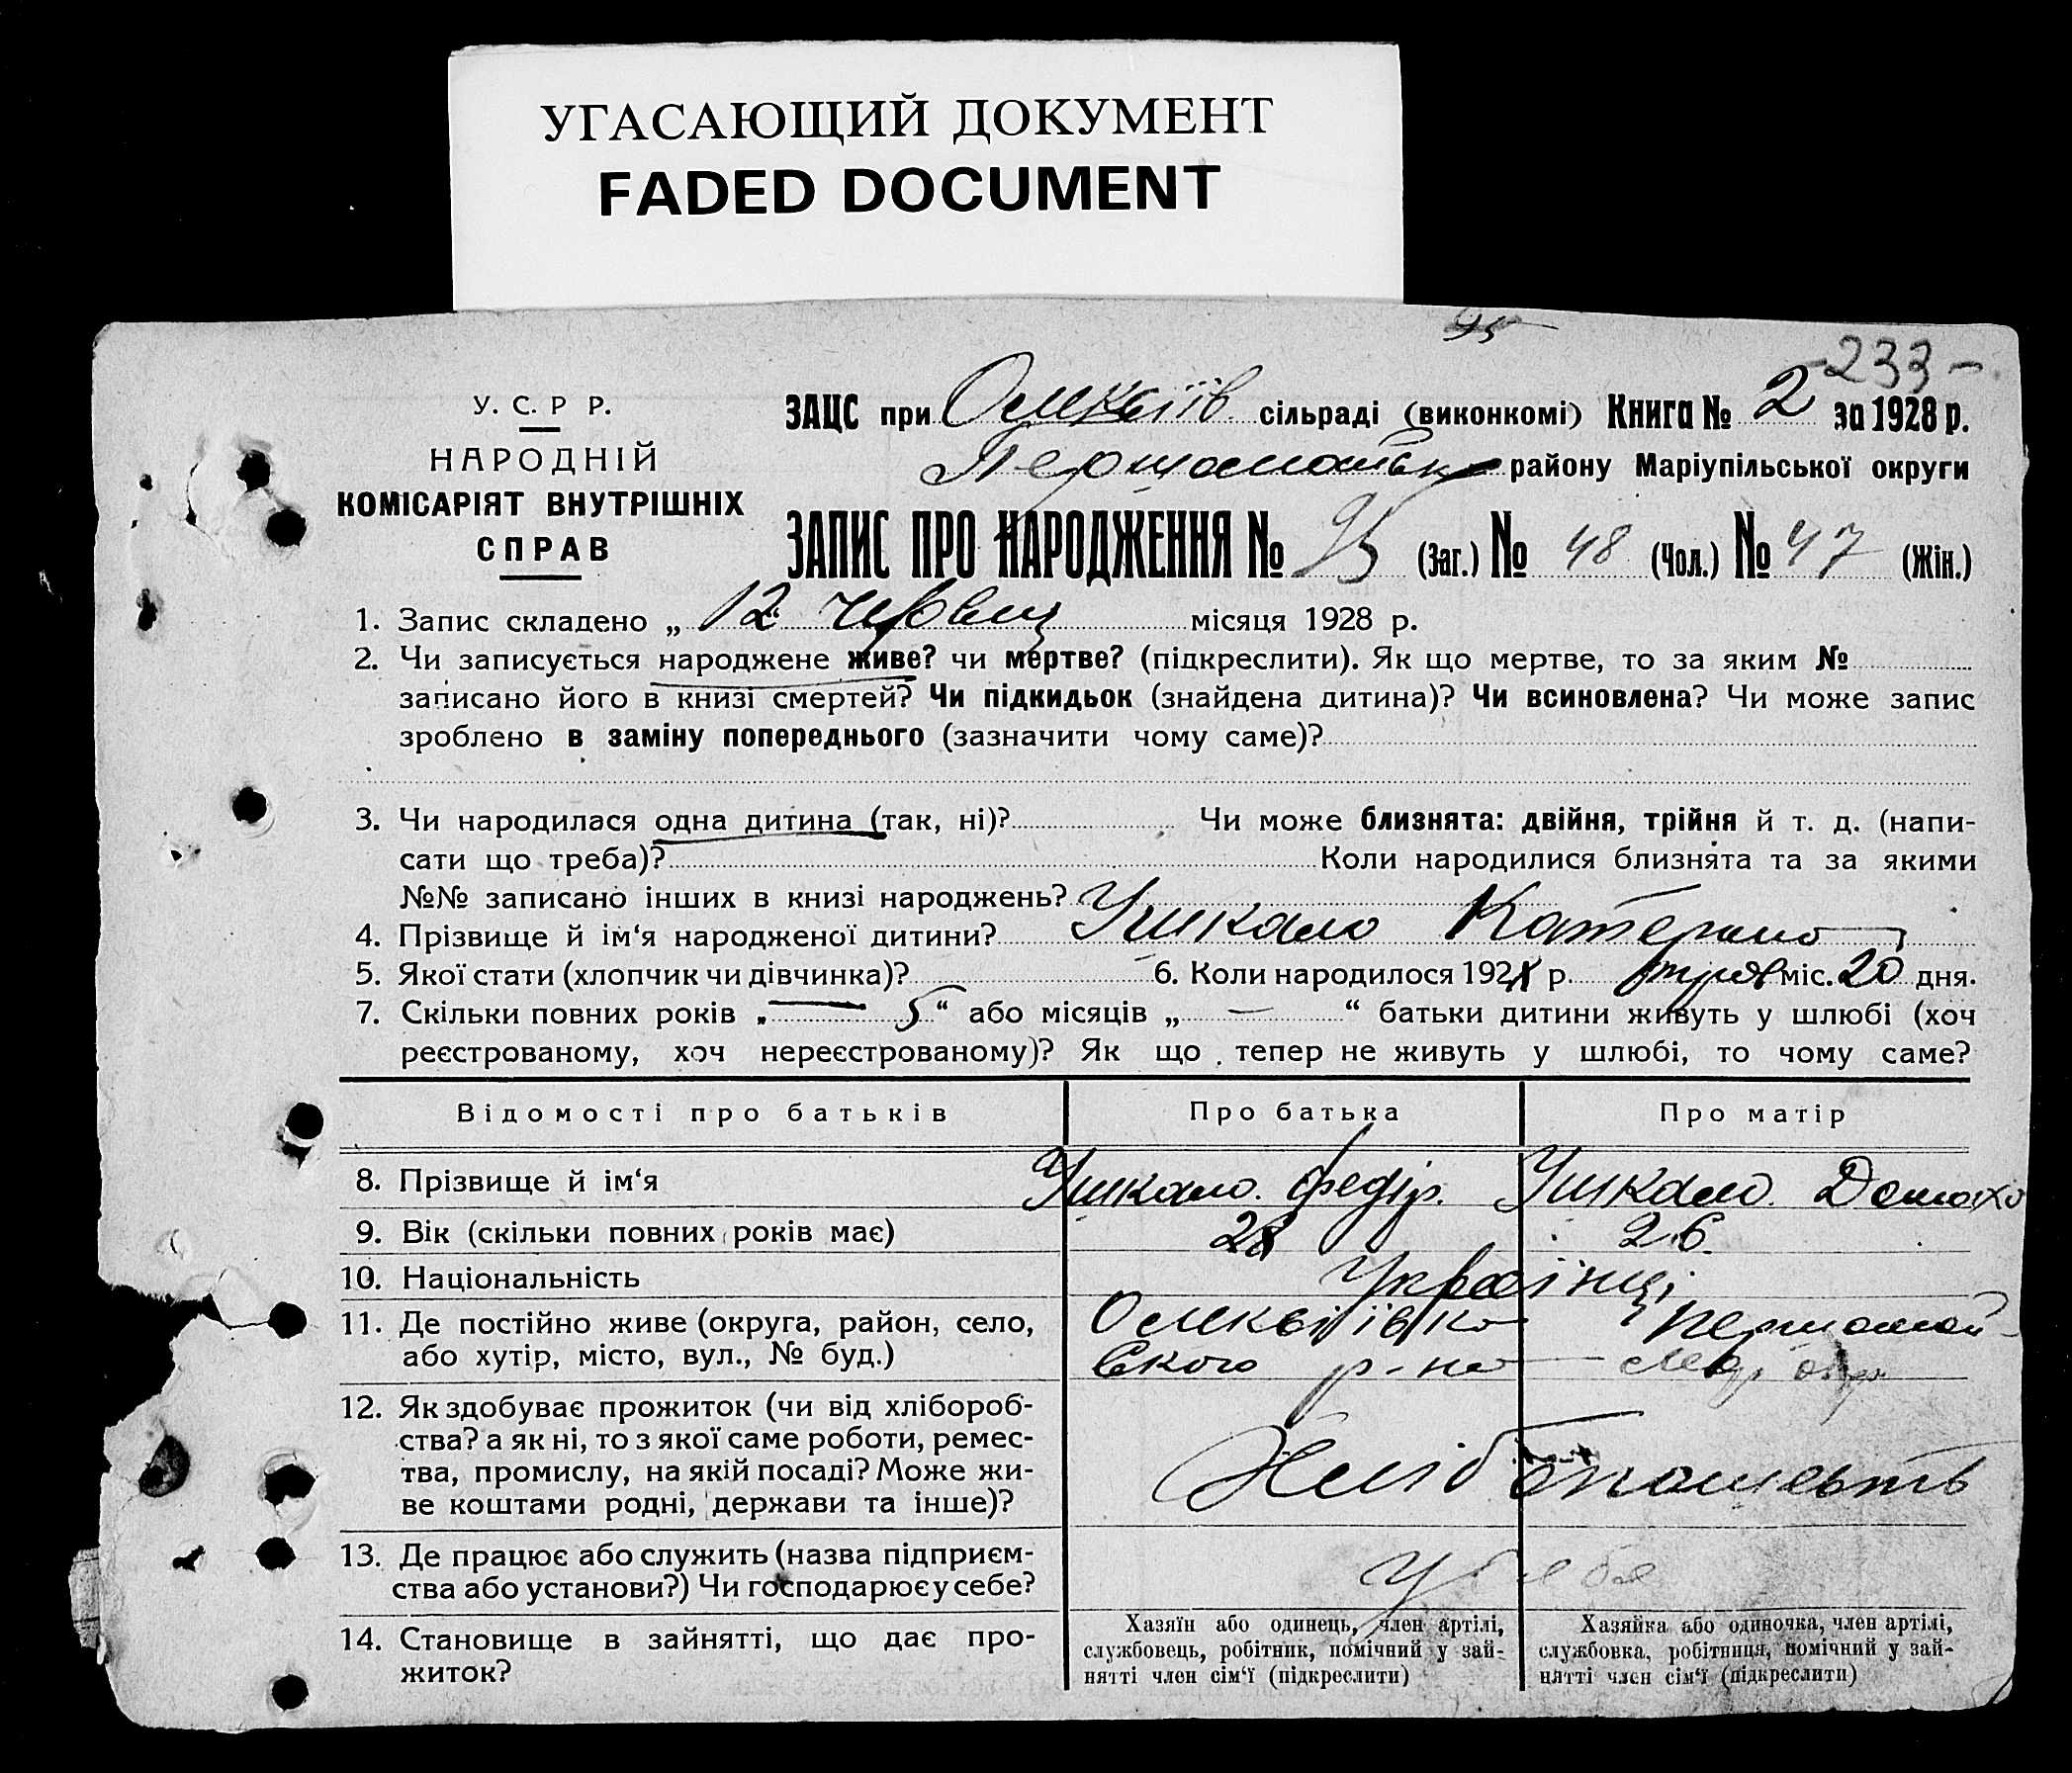 УГАСАЮЩИЙ ДОКУМЕНТ
FADED DOCUMENT
95
-233-
У. С. Р Р.
НАРОДНІЙ
КОМІСАРІЯТ ВНУТРІШНІХ
СПРАВ
ЗАЦС при Олексіїв сільраді (виконкомі) Книга № 2 за 1928 р.
Першомайськ району Маріупільської округи
ЗАПИС ПРО НАРОДЖЕННЯ № 95 (Заг.) № 48 (Чол.) № 47 (Жін.)
1. Запис складено „ 12 червця місяця 1928 р.
2. Чи записується народжене живе? чи мертве? (підкреслити). Як що мертве, то за яким №
записано його в книзі смертей? Чи підкидьок (знайдена дитина)? Чи всиновлена? Чи може запис
зроблено в заміну попереднього (зазначити чому саме)?
3. Чи народилася одна дитина (так, ні)? Чи може близнята: двійня, трійня й т. д. (напи-
сати що треба)? Коли народилися близнята та за якими
№№ записано інших в книзі народжень?
4. Прізвище й ім‘я народженої дитини? Ушкало Катерина
5. Якої стати (хлопчик чи дівчинка)? 6. Коли народилося 192 р. трав міс. 20 дня.
7. Скільки повних років „ — 5 “ або місяців „ — “ батьки дитини живуть у шлюбі (хоч
реєстрованому, хоч нереєстрованому)? Як що тепер не живуть у шлюбі, то чому саме?
Відомості про батьків Про батька Про матір
8. Прізвище й ім‘я Ушкало. Федір. Ушкало. Домаха
9. Вік (скільки повних років має) 28 26.
10. Національність Українці
11. Де постійно живе (округа, район, село, Олексіївка Першомай-
або хутір, місто, вул., № буд.) ського р-на — Мар окр
12. Як здобуває прожиток (чи від хлібороб-
ства? а як ні, то з якої саме роботи, ремес-
тва, промислу, на якій посаді? Може жи-
ве коштами родні, держави та інше)?
13. Де працює або служить (назва підприєм- У себе
ства або установи?) Чи господарює у себе?
14. Становище в зайнятті, що дає про-
житок?
Хазяїн або одинець, член артілі,
службовець, робітник, помічний у зай-
нятті член сім‘ї (підкреслити)
Хазяйка або одиночка, член артілі,
службовка, робітниця, помічний у зай-
нятті член сім‘ї (підкреслити)